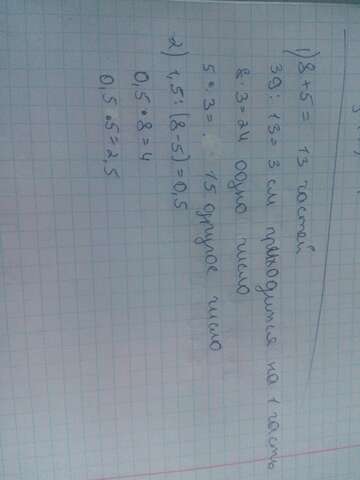 1) 8+5= 13 частей
39:13= 3 см приходится на 1 часть
8·3=24 одно число
5·3= 15 другое число
2) 1,5:(8-5)=0,5
0,5·8=4
0,5·5=2,5